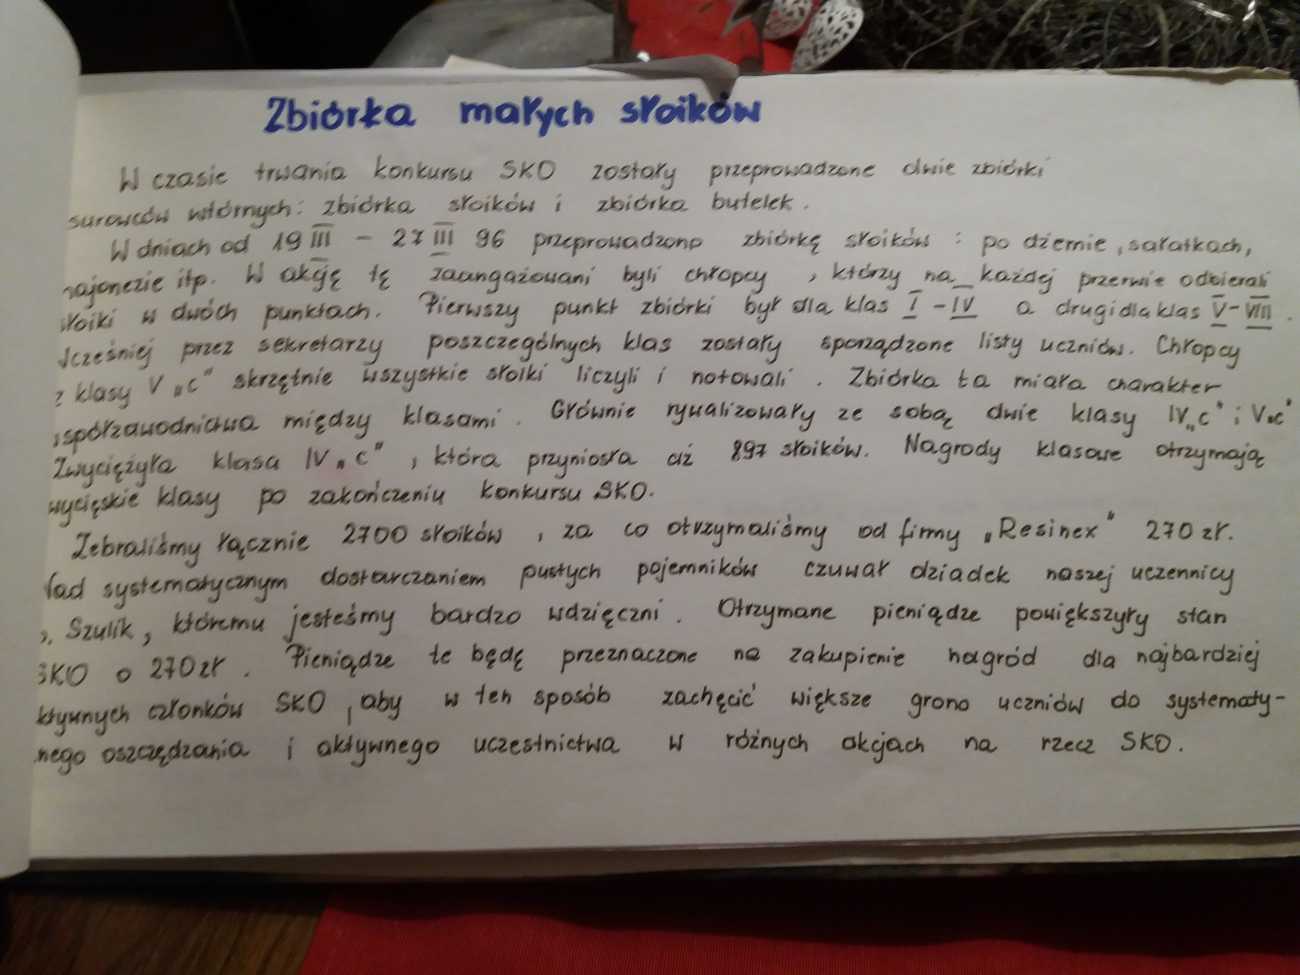 Zbiórka małych słoików
W czasie trwania konkursu SKO zostały przeprowadzone dwie zbiórki
surowców wtórnych: zbiórka słoików i zbiórka butelek.
W dniach od 19 III - 27 III 96 przeprowadzono zbiórkę słoików : po dżemie, sałatkach,
majonezie itp. W akcję tę zaangażowani byli chłopcy , którzy na każdej przerwie odbierali
słoiki w dwóch punktach. Pierwszy punkt zbiórki był dla klas I - IV a drugi dla klas V - VIII .
Wcześniej przez sekretarzy poszczególnych klas zostały sporządzone listy uczniów. Chłopcy
z klasy V „c" skrzętnie wszystkie słoiki liczyli i notowali . Zbiórka ta miała charakter
współzawodnictwa między klasami . Głównie rywalizowały ze sobą dwie klasy IV „c" i V „c"
Zwyciężyła klasa IV „c" , która przyniosła aż 897 słoików. Nagrody klasowe otrzymają
zwycięskie klasy po zakończeniu konkursu SKO.
Zebraliśmy łącznie 2700 słoików , za co otrzymaliśmy od firmy „Resinex" 270 zł.
Nad systematycznym dostarczaniem pustych pojemników czuwał dziadek naszej uczennicy
p. Szulik, któremu jesteśmy bardzo wdzięczni . Otrzymane pieniądze powiększyły stan
SKO o 270 zł . Pieniądze te będę przeznaczone na zakupienie nagród dla najbardziej
aktywnych członków SKO , aby w ten sposób zachęcić większe grono uczniów do systematy-
nego oszczędzania i aktywnego uczestnictwa w różnych akcjach na rzecz SKO.